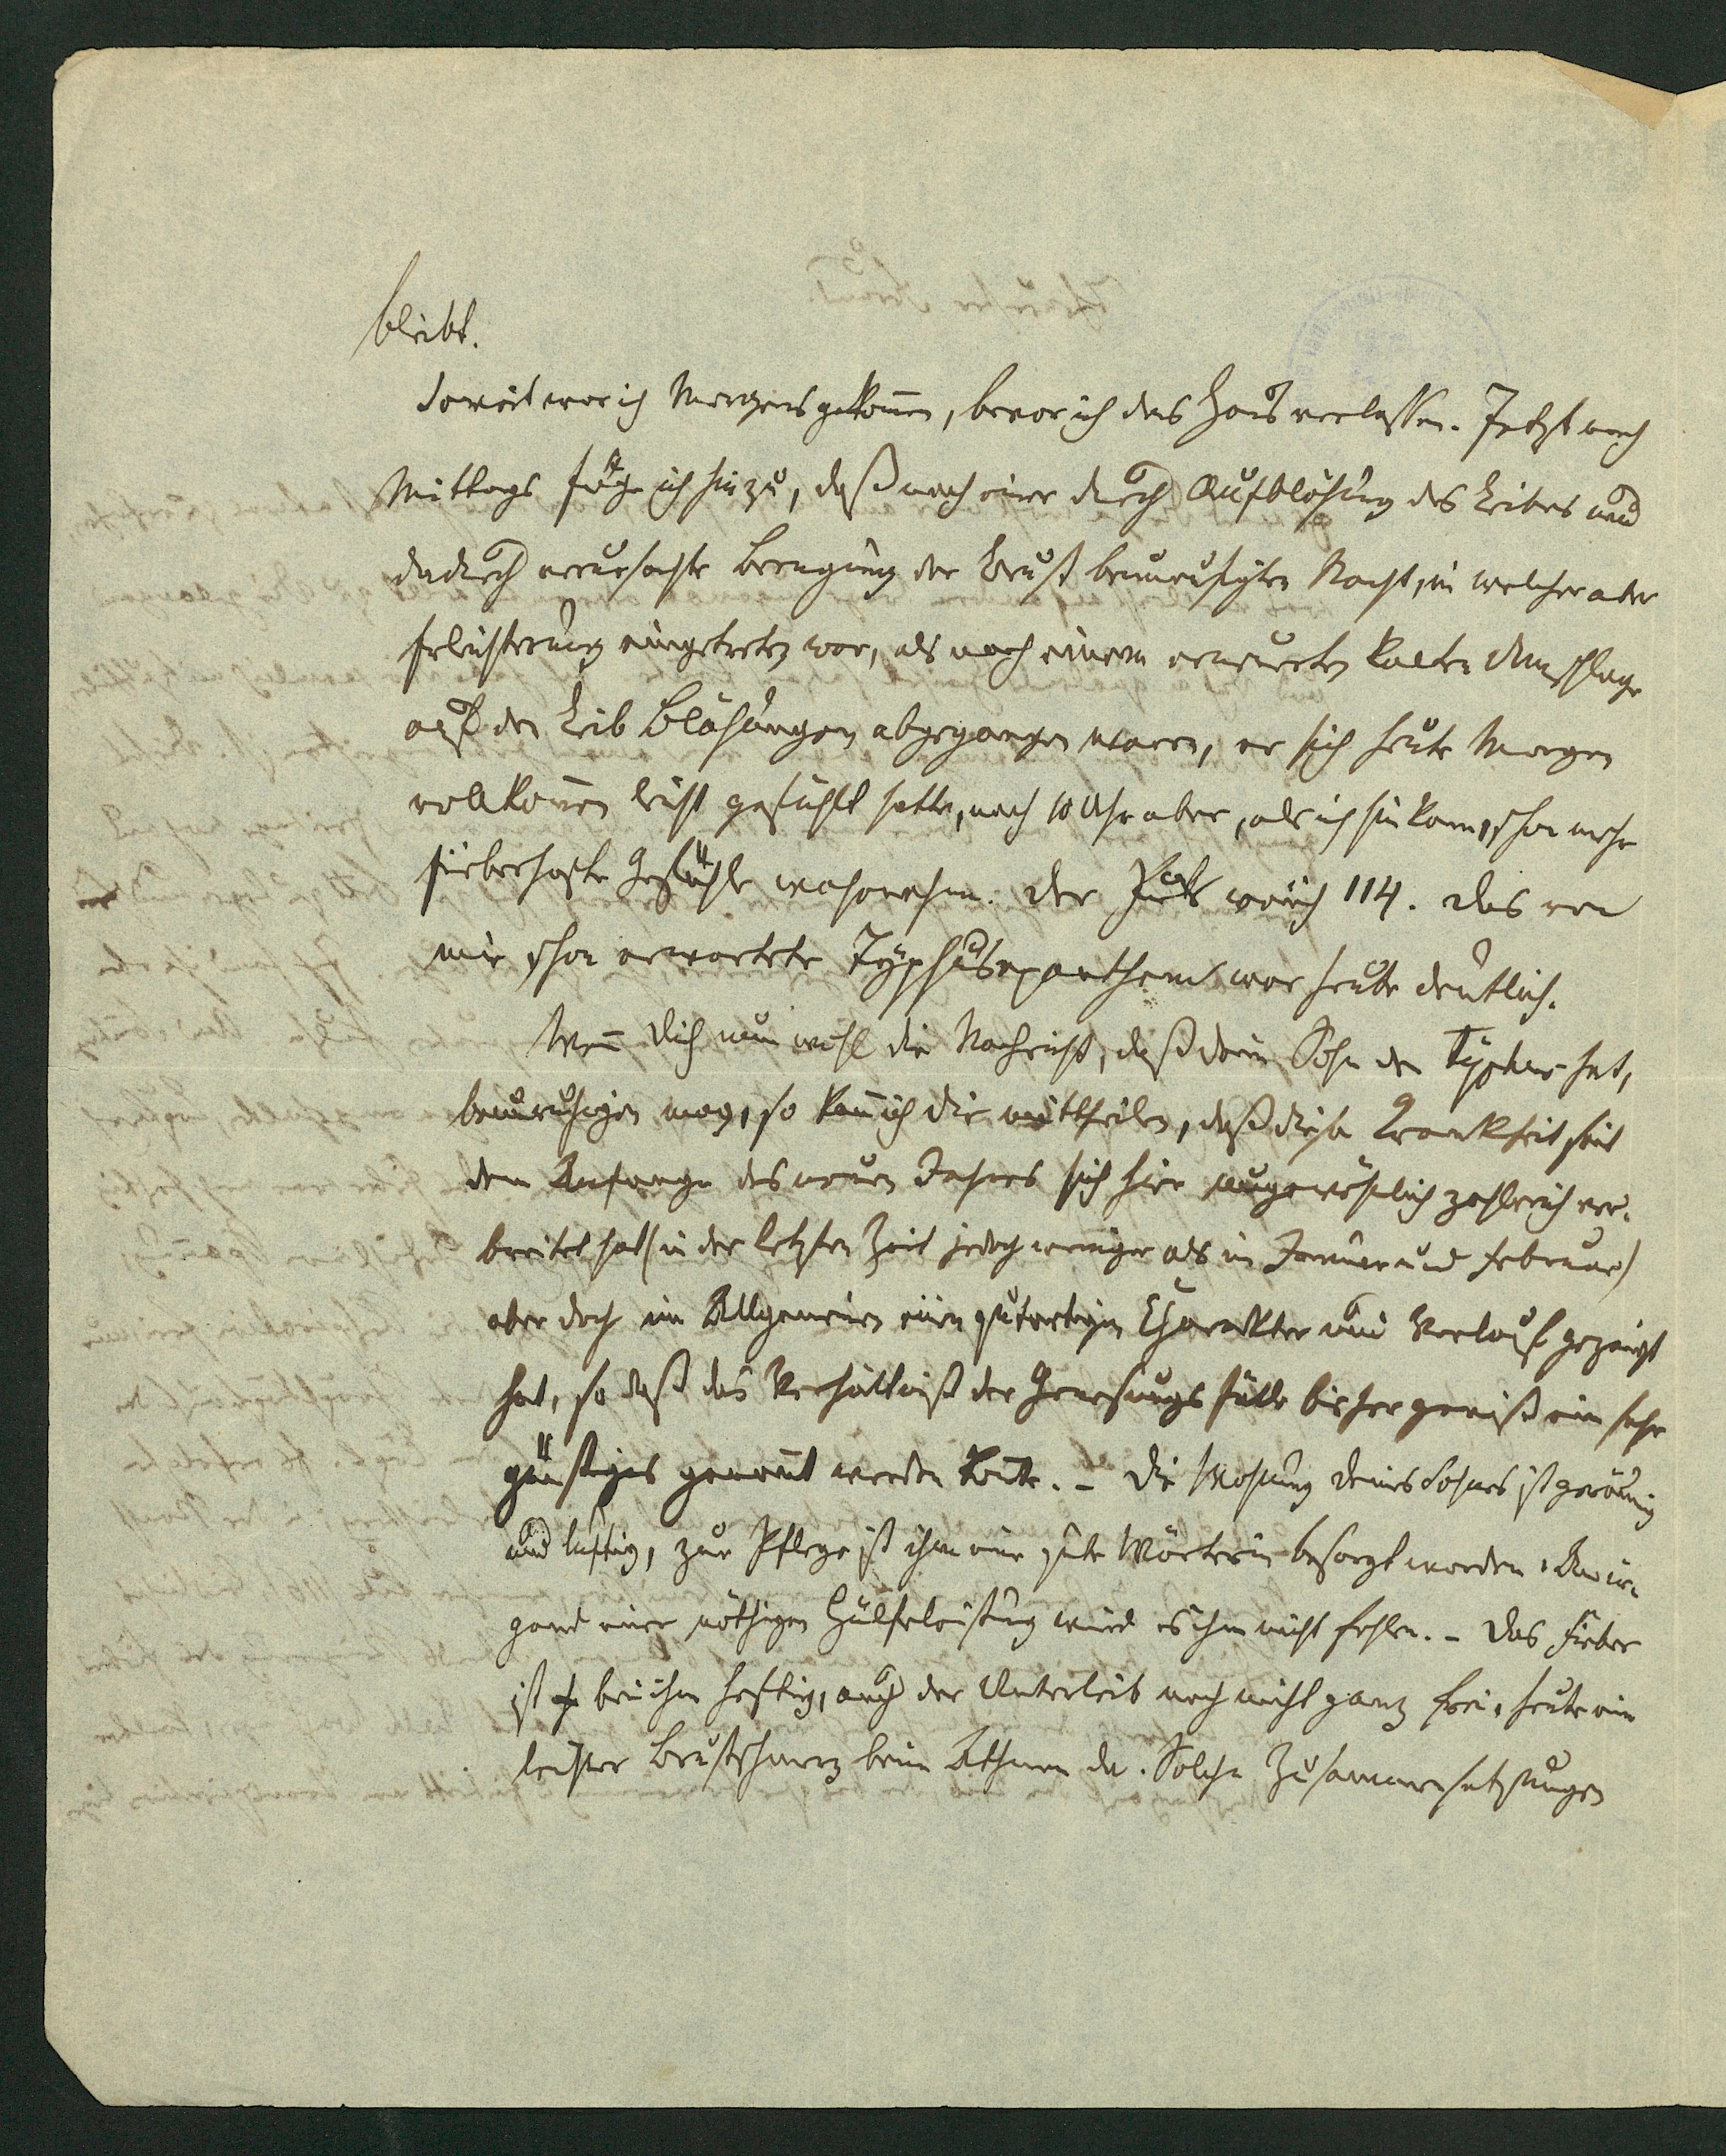 bleibt.
Soweit war ich Morgens gekom̄en, bevor ich das Haus verlassen. Jetzt nach
Mittags füge ich hinzu, daß nach einer durch Aufblähung des Leibes und
dadurch verursachte Beengung der Brust beunruhigten Nacht, in welcher aber
Erleichterung eingetreten war, als nach einem erneuerten kalten Umschlage
auf den Leib Blähungen abgegangen waren, er sich heute Morgen
vollkom̄en leicht gefühlt hatte, nach 10 Uhr aber, als ich hinkam, schon mehr
fieberhafte Gefühle wahrnahm. Der Puls weich 114. Das von
mir schon erwartete Typhusexanthem war heute deutlich.
Wen̄ Dich nun wohl die Nachricht, daß dein Sohn den Typhus hat,
beunruhigen mag, so kan̄ ich dir mittheilen, daß diese Krankheit seit
dem Anfange des neuen Jahres sich hier ungewöhnlich zahlreich ver-
breitet hat (in der letzten Zeit jedoch weniger als im Januar und Februar)
aber doch im Allgemeinen einen gutartigen Charakter und Verlauf gezeigt
hat, so daß das Verhältniß der Genesungsfälle bisher gewiß ein sehr
günstiges genan̄t werden kon̄te. – Die Wohnung deines Sohnes ist geräumig
und luftig, zur Pflege ist ihm eine gute Wärterin besorgt worden. An ir-
gend einer nöthigen Hülfeleistung wird es ihm nicht fehlen. – Das Fieber
ist bei ihm heftig, auch der Unterleib noch nicht ganz frei, heute ein
leichter Brustschmerz beim Athmen da. Solche Zusammensetzungen